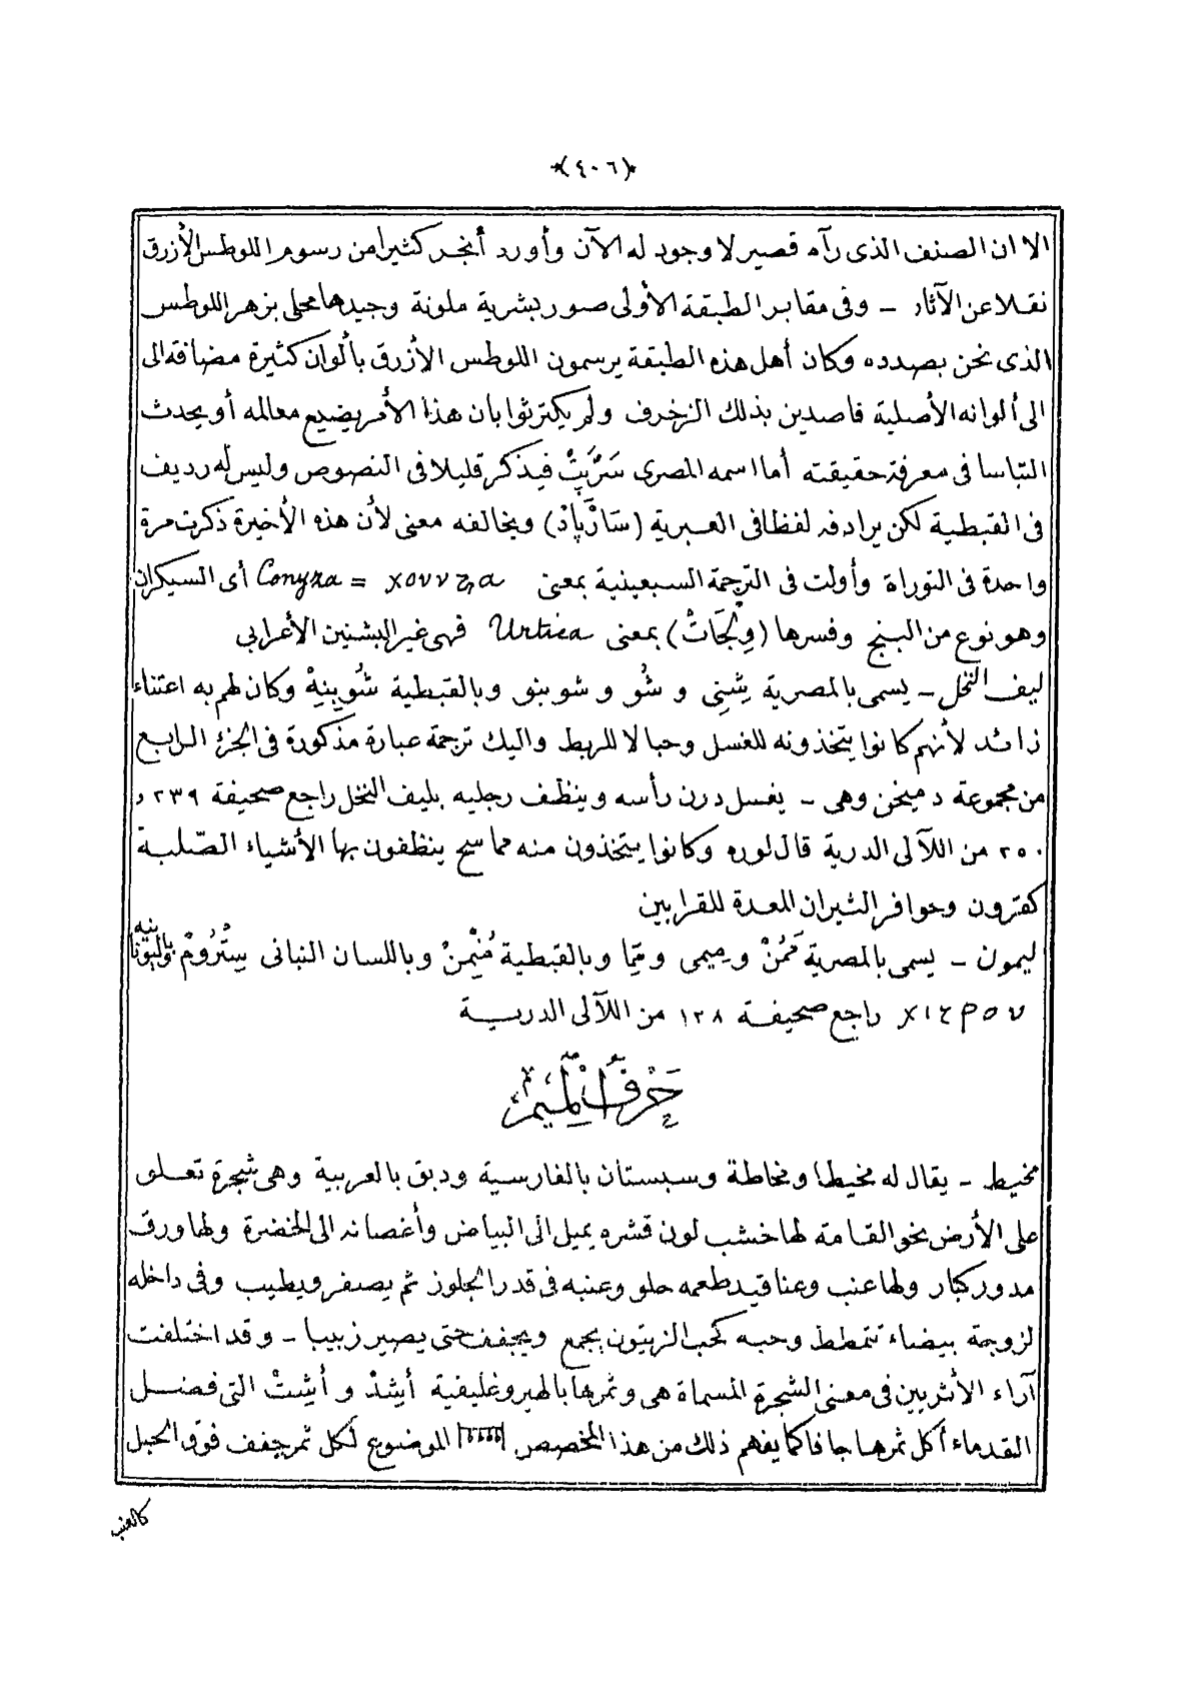 *(٤٠٦)*
الا ان الصنف الذى رآه قصير لا وجود له الآن وأورد أنجر كثيرا من رسوم اللوطس الأزرق
نقلا عن الآثار - وفى مقابر الطبقة الأولى صور بشرية ملونة وجيدها محلى بزهر اللوطس
الذى نحن بصدده وكان أهل هذه الطبقة يرسمون اللوطس الأزرق بألوان كثيرة مضافة الى
الى ألوانه الأصلية قاصدين بذلك الزخرف ولم يكترثوا بان هذا الأمر يضيع معالمه أو يحدث
التباسا فى معرفة حقيقته أما اسمه المصرى سَرْبَتْ فيذكر قليلا فى النصوص وليس له رديف
فى القبطية لكن يرادفه لفظا فى العبرية (سَارْپَادْ) ويخالفه معنى لأن هذه الأخيرة ذكرت مرة
واحدة فى التوراة وأولت فى الترجمة السبعينية بمعنى Conyza = χονυζα أى السيكران
وهو نوع من البنج وفسرها (وِلْجَاتْ) بمعنى Urtica فهى غير البشنين الأعرابى
ليف النخل - يسمى بالمصرية شِنِى و شُو و شو بنو وبالقبطية شُوبِنِهْ وكان لهم به اعتناء
زائد لأنهم كانوا يتخذونه للغسل وحبالا للربط واليك ترجمة عبارة مذكورة فى الجزء الرابع
من مجموعة دميخن وهى - يغسل درن رأسه وينظف رجليه بليف النخل راجع صحيفة ٢٣٩ و
٢٥٠ من اللآلى الدرية قال لوره وكانوا يتخذون منه مماسح ينظفون بها الأشياء الصّلبة
كقرون وحوافر الثيران المعدة للقرابين
ليمون - يسمى بالمصرية مَمُنْ و مِيمى و مِمّا وبالقبطية مُنْيِمنْ وباللسان النباتى سِتْرُومْ وباليونانيه
χιτρον راجع صحيفة ١٢٨ من اللآلى الدرية
حَرْفُ الْمِيمِ
مخيط - يقال له مخيطا ومخاطة وسبستان بالفارسية ودبق بالعربية وهى شجرة تعلو
على الأرض نحو القامة لها خشب لون قشره يميل الى البياض وأغصانه الى الخضرة ولها ورق
مدور كبار ولها عنب وعناقيد طعمه حلو وعنبه فى قدر الجلوز ثم يصفر ويطيب وفى داخله
لزوجة بيضاء تتمطط وحبه كحب الزيتون يجمع ويجفف حتى يصير زبيبا - وقد اختلفت
آراء الأثريين فى معنى الشجرة المسماة هى وثمرها بالهيروغليفية أَيْشِدْ و أَيْشِتْ التى فضل
القدماء أكل ثمرها جافا كما يفهم ذلك من هذا المخصص الموضوع لكل ثمر جفف فوق الحبل
كالعنب